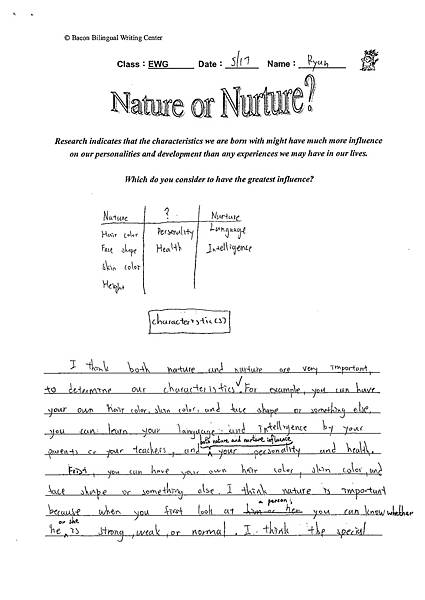 © Bacon Bilingual Writing Center
Class : EWG Date : 5/17 Name : Ryan
Nature or Nurture?
Research indicates that the characteristics we are born with might have much more influence
on our personalities and development than any experiences we may have in our lives.
Which do you consider to have the greatest influence?
Nature ? Nurture
Hair color Personality Language
Face shape Health Intelligence
Skin color
Height
characteristic(s)
I think both nature and nurture are very important,
to determine our characteristics. For example, you can have
your own hair color, skin color, and face shape or something else,
you can learn your language and Intelligence by your
both nature and nurture influence
parents or your teachers, and your personality and health.
First, you can have your own hair color, skin color, and
face shape or something else. I think nature is important
a person,
because when you first look at him or her you can know whether
or she
he is strong, weak, or normal. I think the special